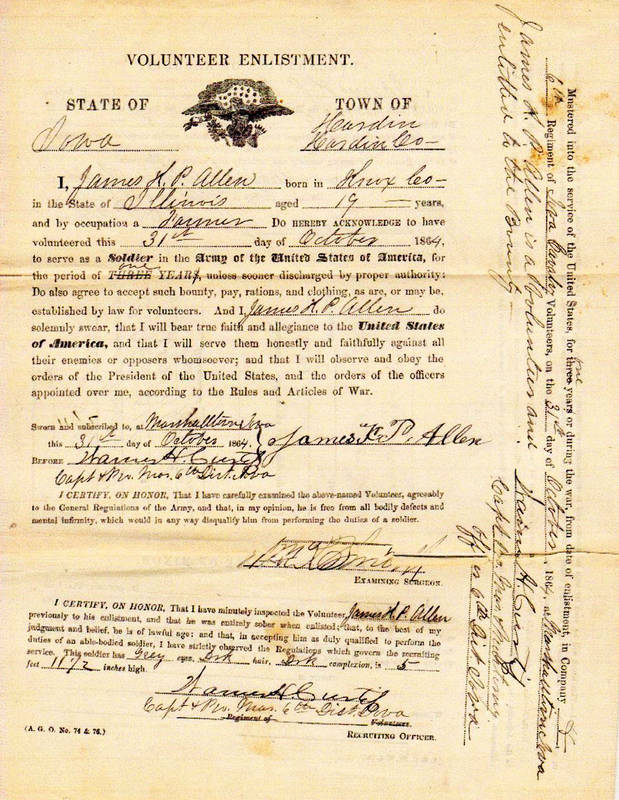 VOLUNTEER ENLISTMENT.
STATE OF
TOWN OF
Iowa
Hardin
Hardin Co
I, James K. P. Allen born in Knox Co
in the State of Illinois aged 19 years,
and by occupation a Farmer Do HEREBY ACKNOWLEDGE to have
volunteered this 31st day of October 1864,
to serve as a Soldier in the Army of the United States of America, for
the period of THREE one YEARS, unless sooner discharged by proper authority:
Do also agree to accept such bounty, pay, rations, and clothing, as are, or may be,
established by law for volunteers. And I, James K. P. Allen do
solemnly swear, that I will bear true faith and allegiance to the United States
of America, and that I will serve them honestly and faithfully against all
their enemies or opposers whomsoever; and that I will observe and obey the
orders of the President of the United States, and the orders of the officers
appointed over me, according to the Rules and Articles of War.
Sworn and subscribed to, at Marshalltown Iowa
this 31st day of October 1864
James K. P. Allen
BEFORE Warner H. Curtis
Capt & Pro. Mar. 6th Dist. Iowa
I CERTIFY, ON HONOR, That I have carefully examined the above-named Volunteer, agreeably
to the General Regulations of the Army, and that, in my opinion, he is free from all bodily defects and
mental infirmity, which would in any way disqualify him from performing the duties of a soldier.
EXAMINING SURGEON.
I CERTIFY, ON HONOR, That I have minutely inspected the Volunteer, James K. P. Allen
previously to his enlistment, and that he was entirely sober when enlisted; that, to the best of my
judgment and belief, he is of lawful age; and that, in accepting him as duly qualified to perform the
duties of an able-bodied soldier, I have strictly observed the Regulations which govern the recruiting
service. This soldier has Grey eyes, Drk hair, Drk complexion, is 5
feet 11 1/2 inches high.
Warner H. Curtis
Capt & Pro. Mar. 6th Dist. Iowa
Regiment of Volunteers
RECRUITING OFFICER.
(A. G. O. No. 74 & 76.)
Mustered into the service of the United States, for three one years or during the war, from date of enlistment, in Company
6th Regiment of Iowa Cavalry Volunteers, on the 31st day of October, 1864, at Marshalltown Iowa
James K. P. Allen is a Volunteer and
entitled to the Bounty
Warner H. Curtis
Capt & Pro. Mar.
Off cr 6th Dist Iowa